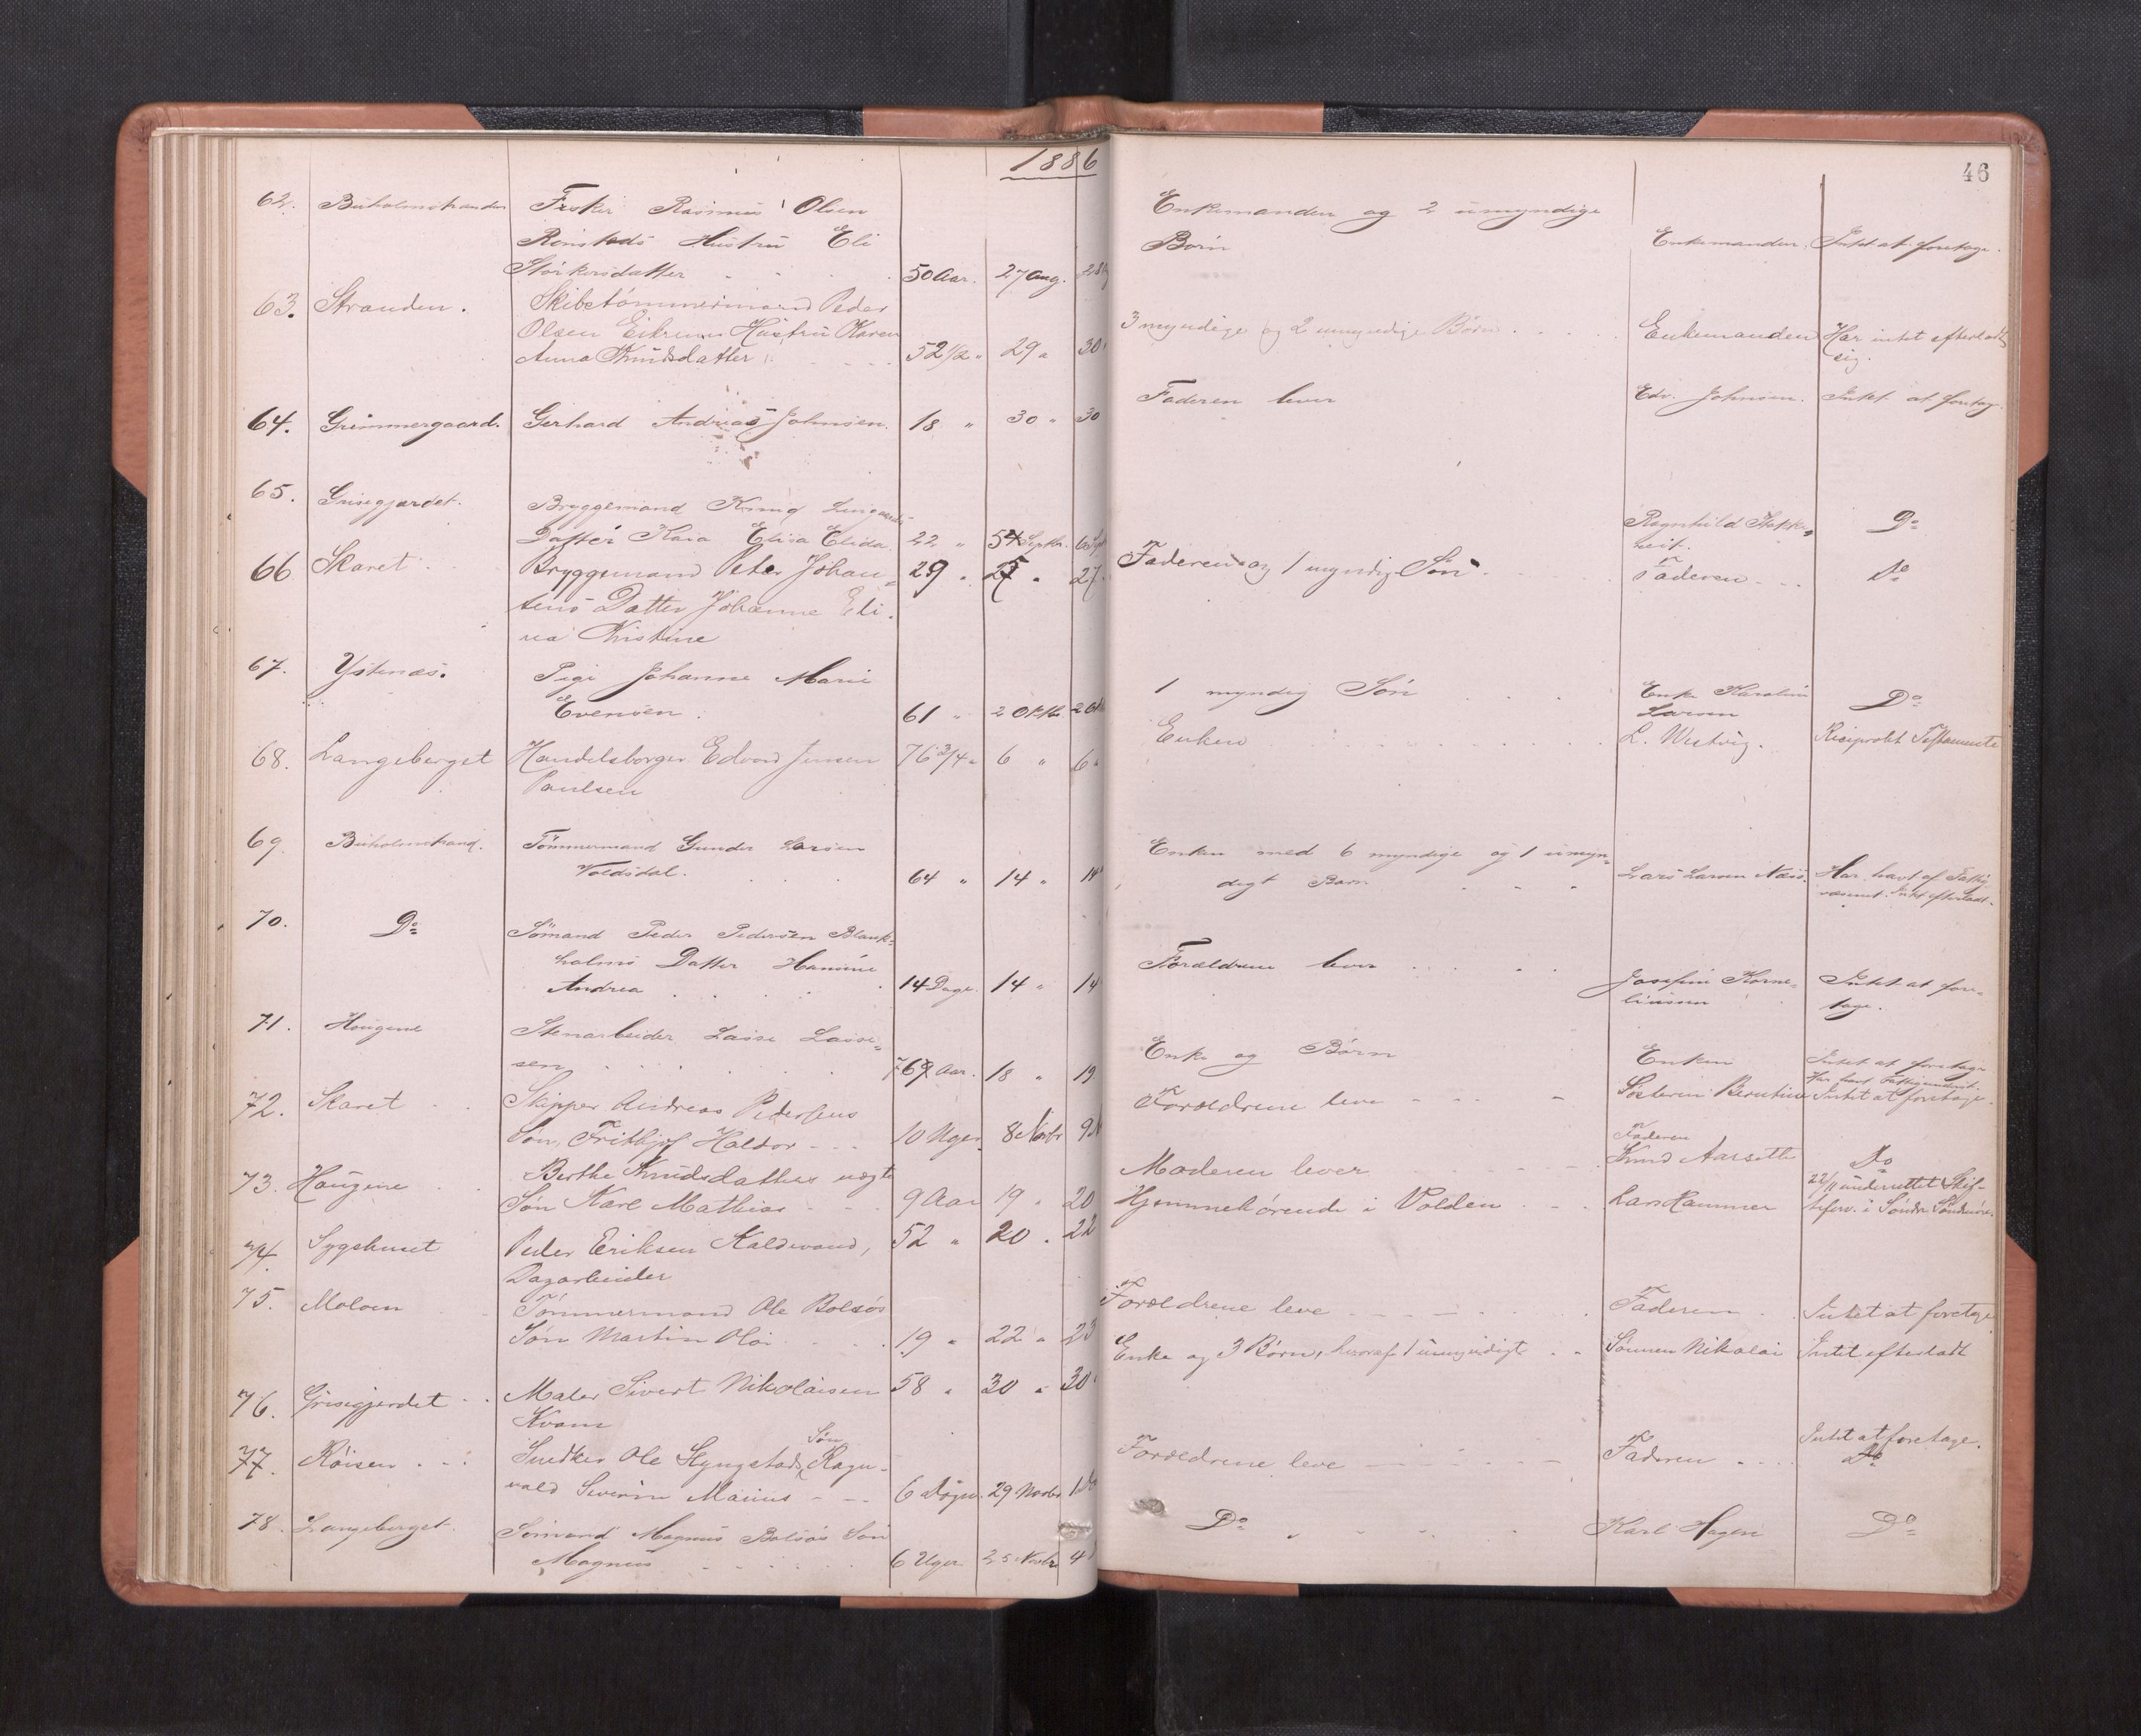 1886
46
62. Buholmstranden Fisker Rasmus Olsen
Rønstads Hustru Eli
Størkersdatter 50 Aar. 27 Aug. 28
Enkemanden og 2 umyndige
Børn Enkemanden. Intet at foretage.
63. Stranden. Skibstømmermand Peder
Olsen Eikrems Hustru Karen
Anna Knudsdatter 52 1/2 " 29 " 30
3 myndige og 2 umyndige Børn Enkemanden Har intet efterladt
sig.
64. Grimmergaard. Gerhard Andreas Johnsen. 18 " 30 " 30
Faderen lever Edv. Johnsen. Intet at foretag.
65. Grisegjærdet. Bryggemand Knud
Datter Kaia Elisa Elida 22 " Septbr. 6
Ragnhild Do
66 Skaret Bryggemand Peter Johan-
sens Datter Johanne Eli-
na Kristine 29 " 27
Faderen og 1 myndig Søn Faderen Do
67. Ystenæs. Pige Johanne Marie
Evensen. 61 " 2 Oktb. 2
1 myndig Søn Enke Karoline
Larsen Do
68. Langeberget Handelsborger Edvard Jensen
Paulsen 76 3/4 " 6 " 6
Enken L. Westvig. Reciprokt Testamente
69. Buholmstrand. Tømmermand Gunder Larsen
Voldsdal. 64 " 14 " 14
Enken med 6 myndige og 1 umyn-
digt Barn Lars Larsen Næs. Har havt af Fattig
væsenet. Intet efterladt.
70. Do Sømand Peder Pedersen Blank-
holms Datter Hansine
Andrea 14 Dage. 14 " 14
Forældrene lever Josefine Korne-
liussen Intet at fore-
tage.
71. Hougene Stenarbeider Lasse Lasse-
sen 69 Aar. 18 " 19
Enke og Børn Enken Intet at foretage
72. Skaret Skipper Andreas Pedersens
Søn, Frithjof Haldor 10 Uger 8 Novbr 9
Forældrene leve Søsteren Berntine Intet at foretage.
Faderen
73. Haugene Berthe Knudsdatters uægte
Søn Karl Mathias 9 Aar 19 " 20
Moderen lever Knud Aarsæthe Do
74. Sygehuset Peder Eriksen Kaldvand,
Dagarbeider 52 " 20 " 22
Hjemmehørende i Volden Lars Hammer 22/11 underrettet Skif-
teforv. i Søndre Søndmøre.
75. Moloen Tømmermand Ole Bolsøs
Søn Martin Olai 19 " 22 " 23
Forældrene leve Faderen Intet at foretage
76. Grisegjerdet Maler Sivert Nikolaisen
Kvam 58 " 30 " 30
Enke og 3 Børn, hvoraf 1 umyndigt Sønnen Nikolai Intet efterladt
77. Røisen Snedker Ole Slyngstads Søn Ragn-
vald Severin Marius 6 Døgn. 29 Novbr 1
Forældrene leve Faderen Intet at foretage.
Do
78. Langeberget. Sømand Magnus Bolsøs Søn
Magnus 6 Uger. 25 Novbr 4
Do Karl Hagen Do